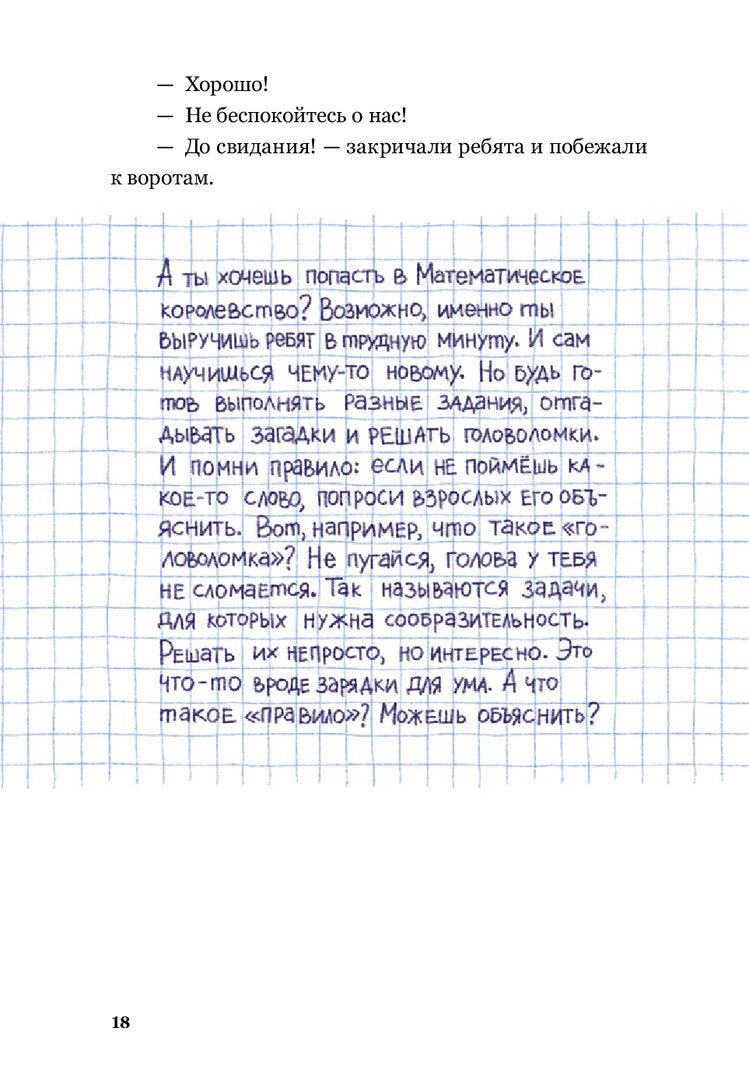 — Хорошо!
— Не беспокойтесь о нас!
— До свидания! — закричали ребята и побежали
к воротам.
А ты хочешь попасть в Математическое
королевство? Возможно, именно ты
выручишь ребят в трудную минуту. И сам
научишься чему-то новому. Но будь го-
тов выполнять разные задания, отга-
дывать загадки и решать головоломки.
И помни правило: если не поймёшь ка-
кое-то слово, попроси взрослых его объ-
яснить. Вот, например, что такое «го-
ловоломка»? Не пугайся, голова у тебя
не сломается. Так называются задачи,
для которых нужна сообразительность.
Решать их непросто, но интересно. Это
что-то вроде зарядки для ума. А что
такое «правило»? Можешь объяснить?
18